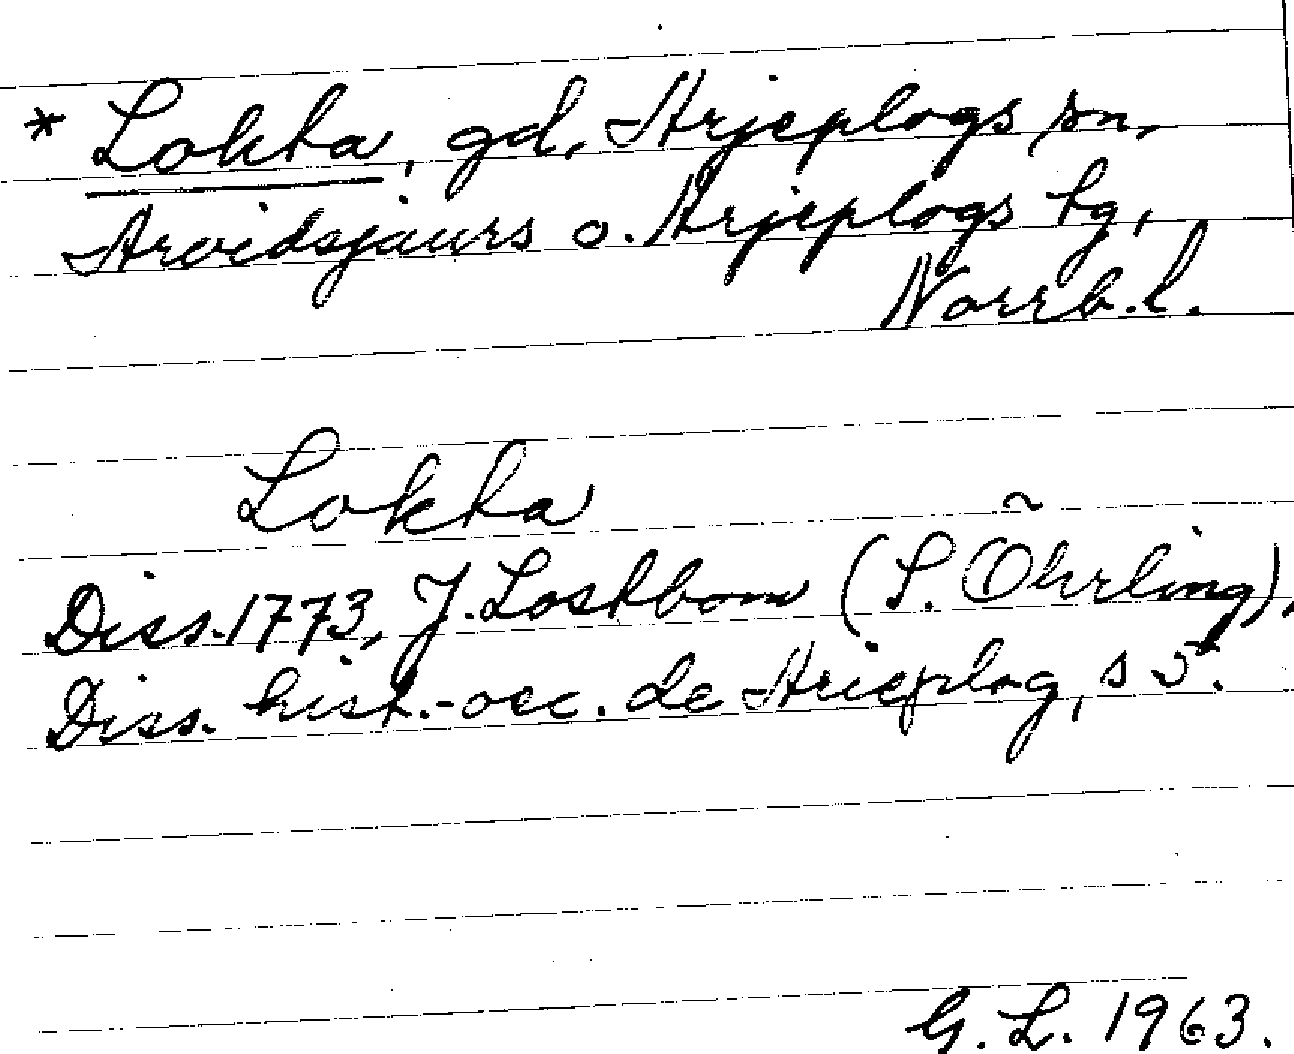 * Lokta, gd, Arjeplogs sn,
Arvidsjaurs o. Arjeplogs tg,
Norrb. l.
Lokta
Diss. 1773, J. Lostbom (S. Öhrling),
Diss. hist.-oec. de Arieplog, s 5.
G. L. 1963.